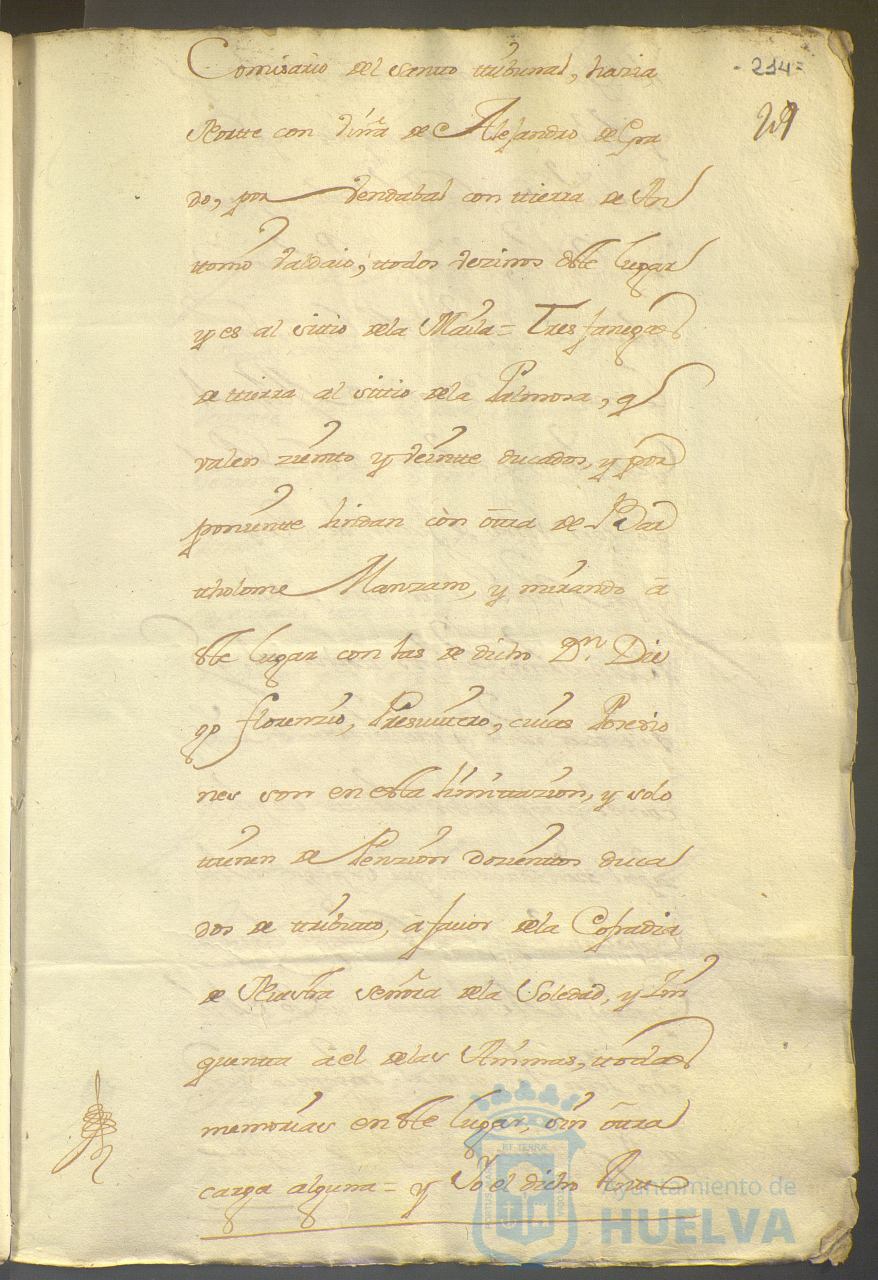 - 214 =
Comisario del santo tribunal, hazia
Norte con viña de Alejandro de Gra
do, por vendabal con tierra de An
tonio Valdaio, todos vezinos deste lugar
y es al sitio dela = Tres fanegas
de tierra al sitio dela Palmosa, q
valen ziento y veinte ducados, y por
poniente lindan còn ôtra de Bar
tholome Manzano, y mirando â
este lugar con las de dicho Dn. Die
go florenzio, Presvitero, cuias Posesio
nes son en esta limitazion, y solo
tienen de Penzion dozientos duca
dos de tributo, â favor dela Cofradia
de Nuestra señora dela Soledad, y
quenta â el delas Animas, todas
memorias en este lugar, sin ôtra
carga alguna = y Yo el dicho
Ayuntamiento de
HUELVA